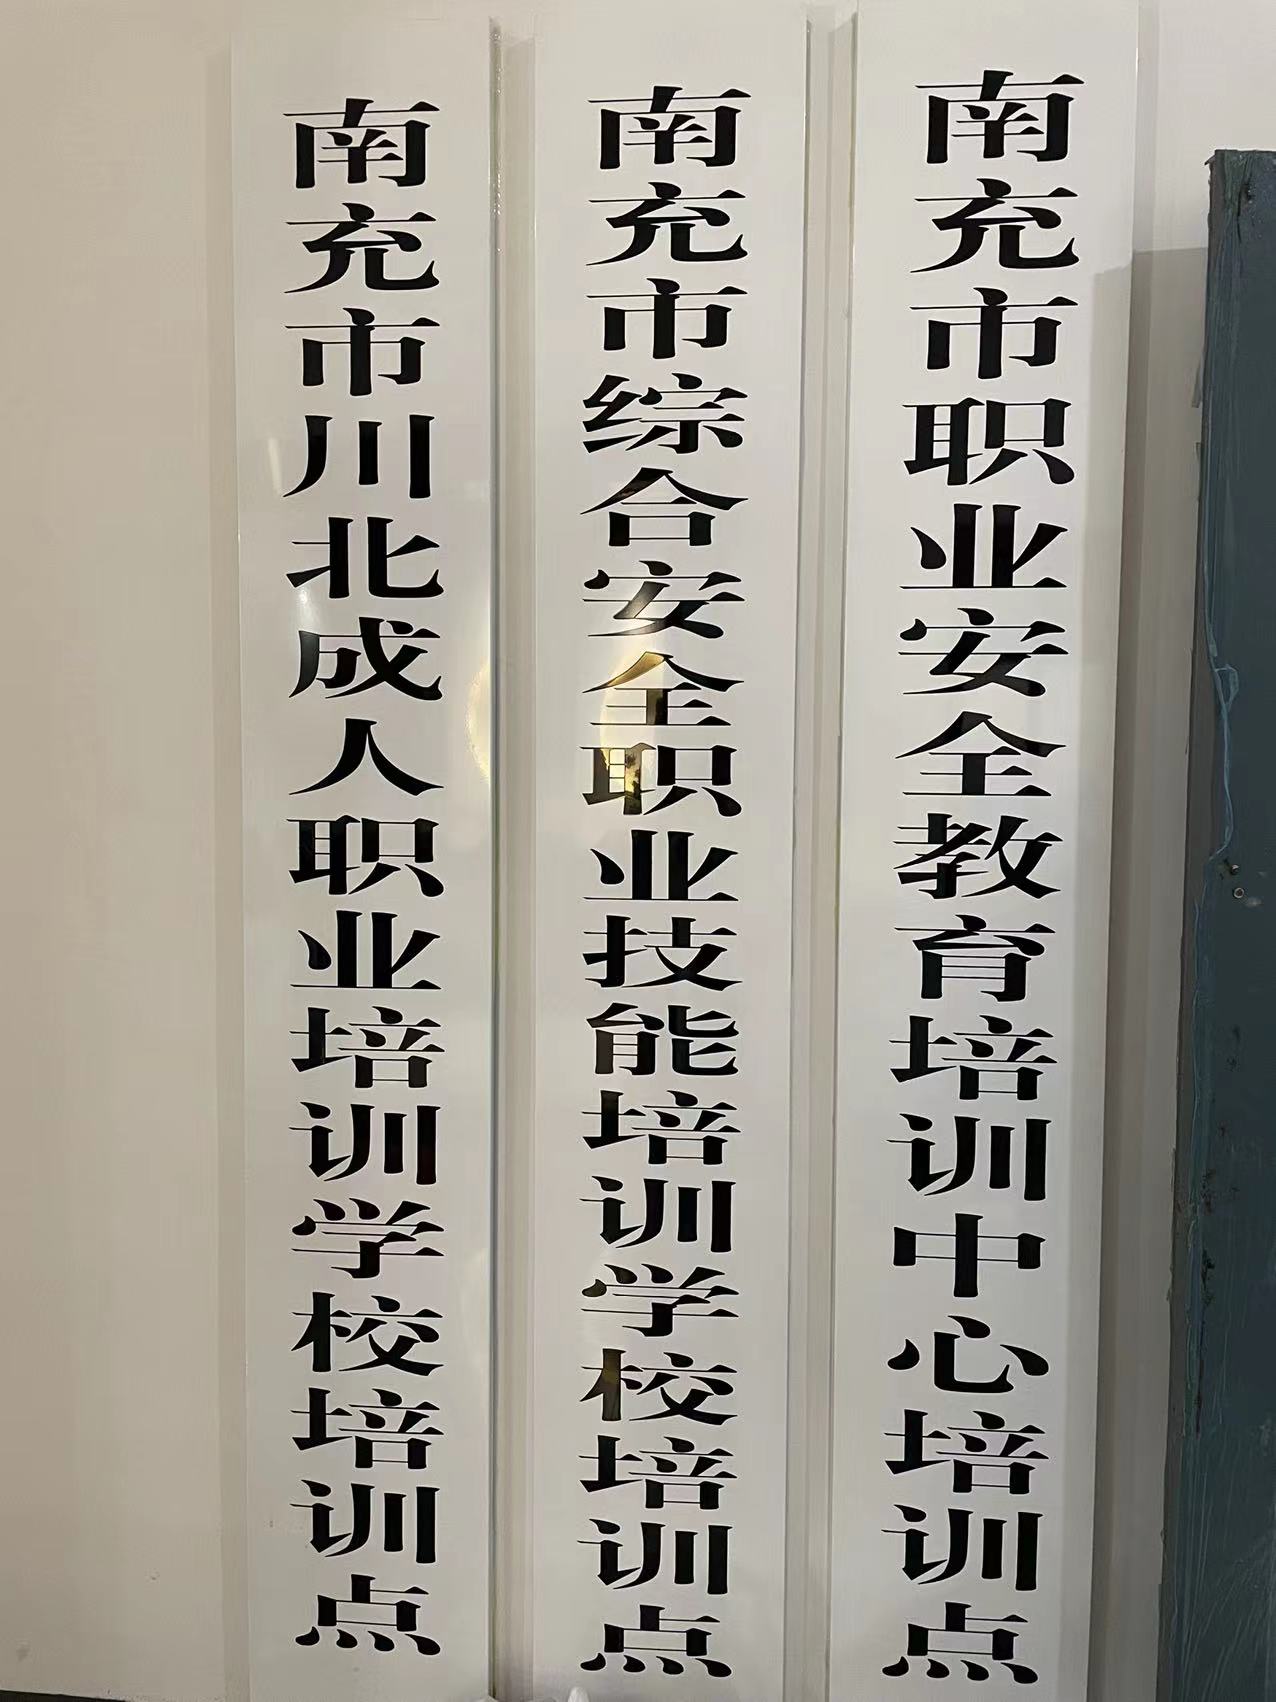 南充市川北成人职业培训学校培训点
南充市综合安全职业技能培训学校培训点
南充市职业安全教育培训中心培训点